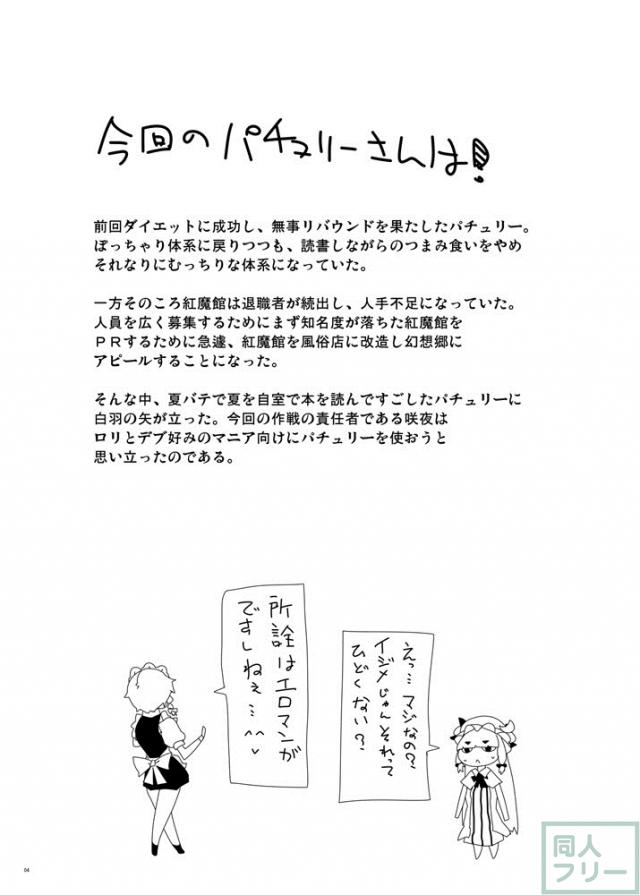 今回のパチュリーさんは!
前回ダイエットに成功し、無事リバウンドを果たしたパチュリー。
ぽっちゃり体系に戻りつつも、読書しながらのつまみ食いをやめ
それなりにむっちりな体系になっていた。
一方そのころ紅魔館は退職者が続出し、人手不足になっていた。
人員を広く募集するためにまず知名度が落ちた紅魔館を
PRするために急遽、紅魔館を風俗店に改造し幻想郷に
アピールすることになった。
そんな中、夏バテで夏を自室で本を読んですごしたパチュリーに
白羽の矢が立った。今回の作戦の責任者である咲夜は
ロリとデブ好みのマニア向けにパチュリーを使おうと
思い立ったのである。
えっ…マジなの?
イジメじゃんそれって
ひどくない?
所詮はエロマンガ
ですしねぇ…^^
04
同人
フリー